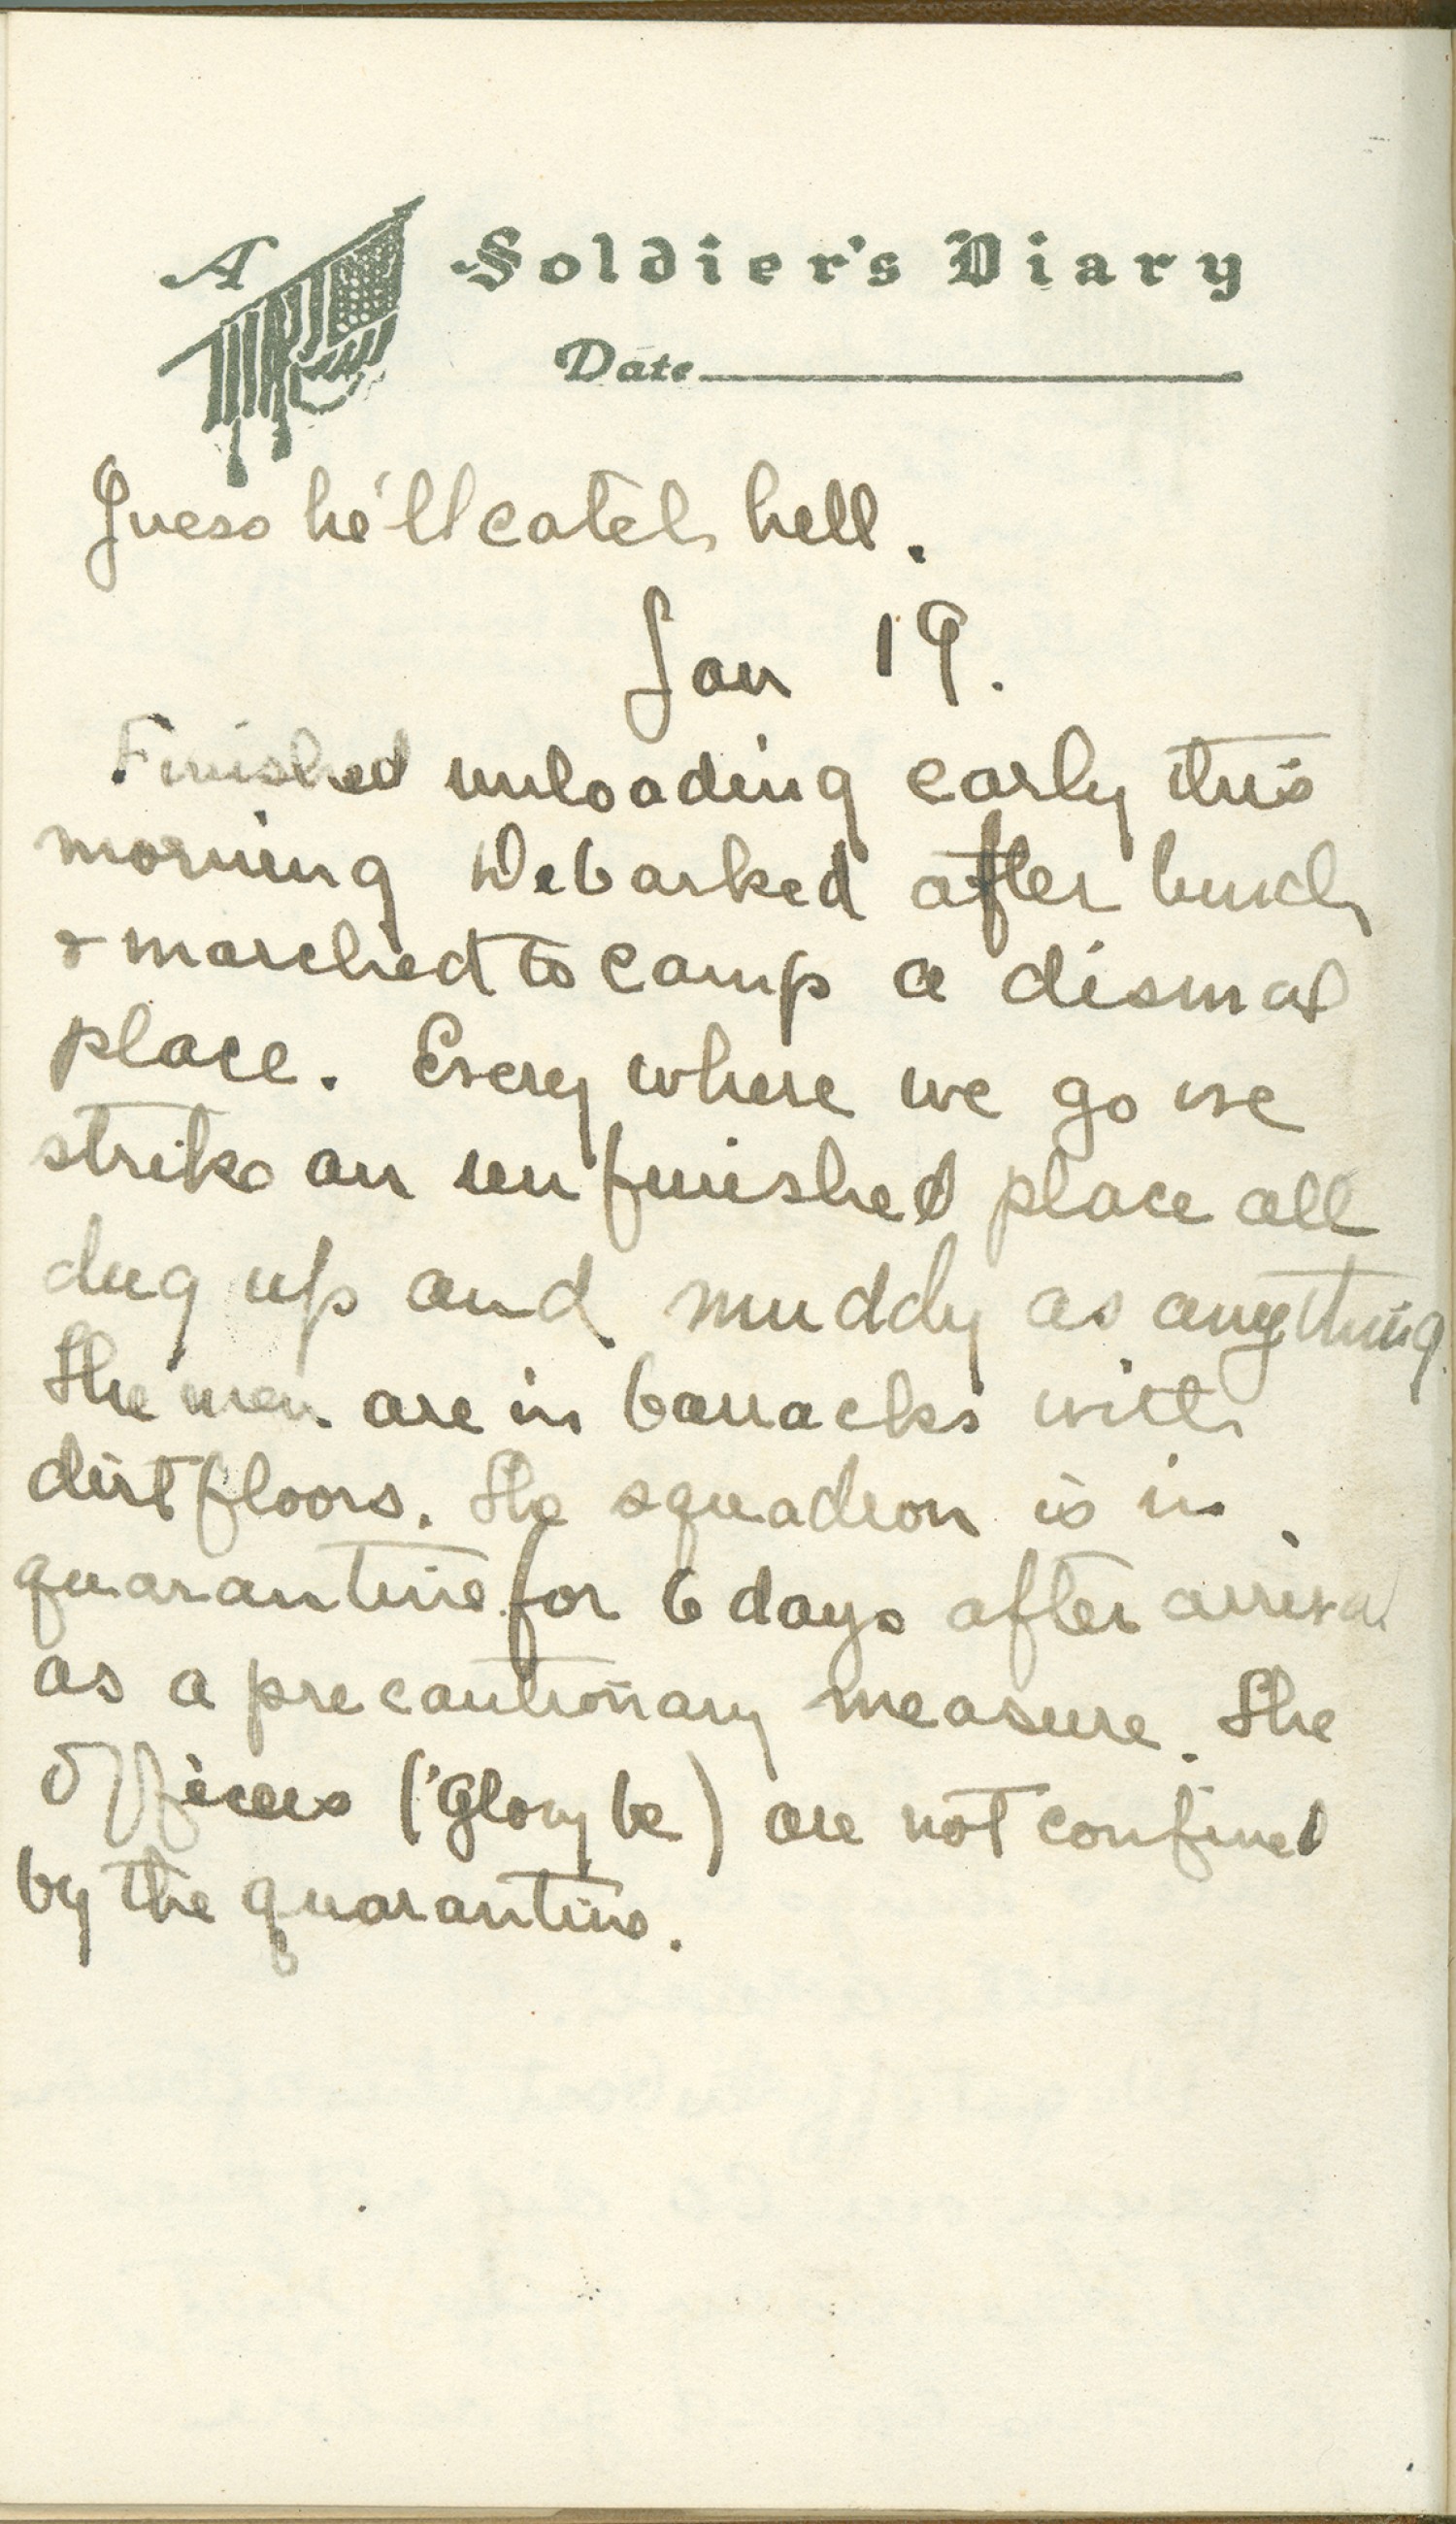 A Soldier's Diary
Date
Guess he'll catch hell.
Jan 19.
Finished unloading early this
morning Debarked after lunch
& marched to camp a dismal
place. Every where we go we
strike an un finished place all
dug up and muddy as anything.
The men are in barracks with
dirt floors. The squadron is in
quarantine for 6 days after arrival
as a precautionary measure. The
Officers ('Glory be) are not confined
by the quarantine.